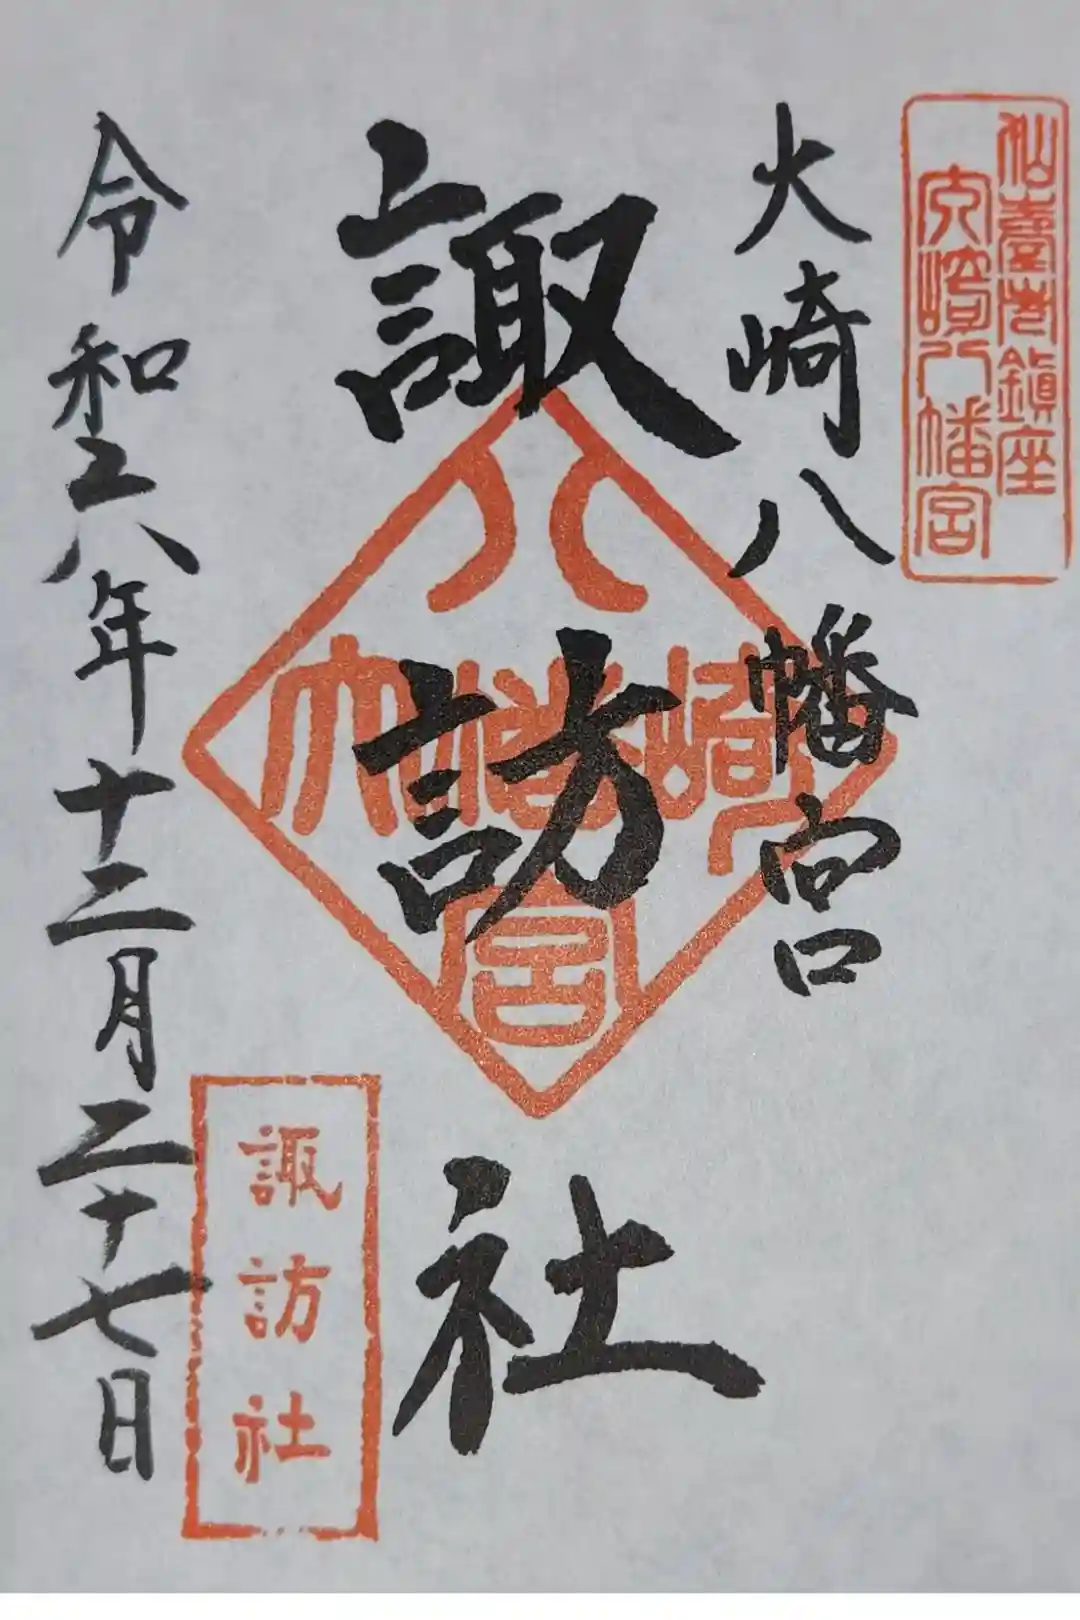 仙臺市鎮座
大崎八幡宮
大崎八幡宮
諏訪社
大崎八幡宮
諏訪社
令和六年十二月二十七日